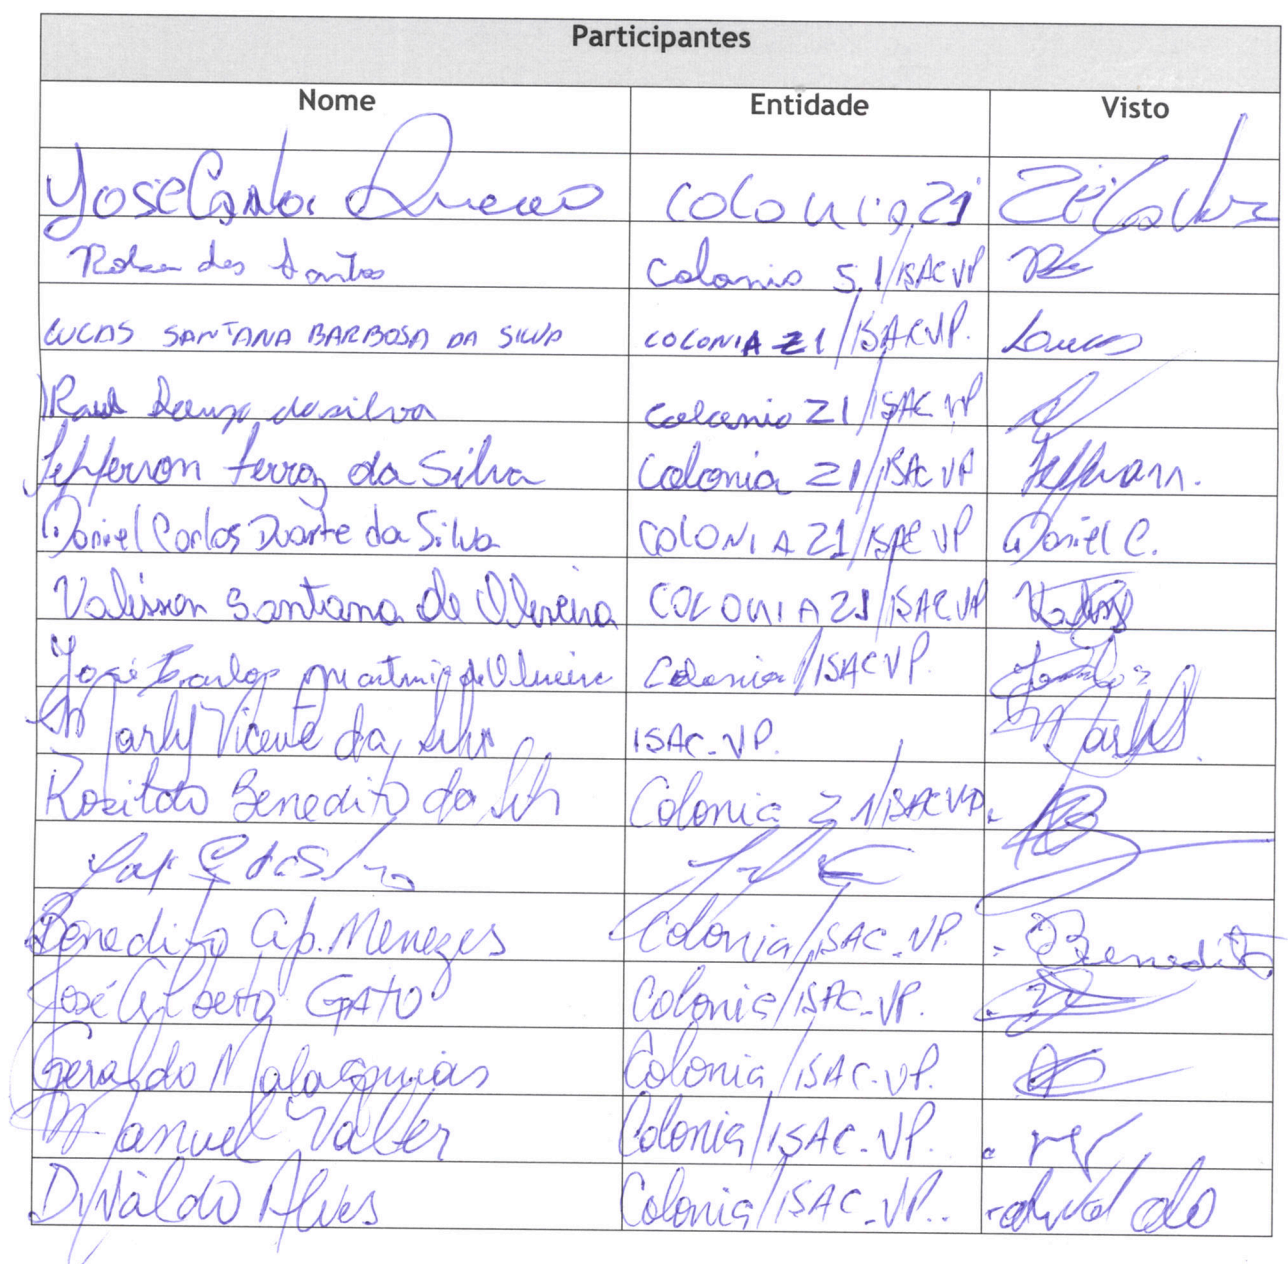 Participantes
Nome Entidade Visto
José Carlos COLONIA Z1 Zé Carlos
dos Santos Colonia Z1/ISAC VP
LUCAS SANTANA BARBOSA DA SILVA COLONIA Z1/ISAC VP. Lucas
Raul da silva colonia Z1/ISAC VP
Jefferson Ferraz da Silva Colonia Z1/ISAC VP Jefferson.
Daniel Carlos Duarte da Silva COLONIA Z1/ISAC VP Daniel C.
Valisson Santana de Oliveira COLONIA Z1/ISAC VP
José Carlos Martins de Oliveira Colonia/ISAC VP.
Marly Vicente da Silva ISAC-VP. Marly
Rozildo Benedito da Silva Colonia Z1/ISAC VP.
Benedito Ap. Menezes Colonia/ISAC-VP. Benedito
José Alberto GATO Colonia/ISAC-VP.
Geraldo Malaquias Colonia/ISAC-VP.
Manuel Valter Colonia/ISAC-VP.
Divaldo Alves Colonia/ISAC-VP. divaldo